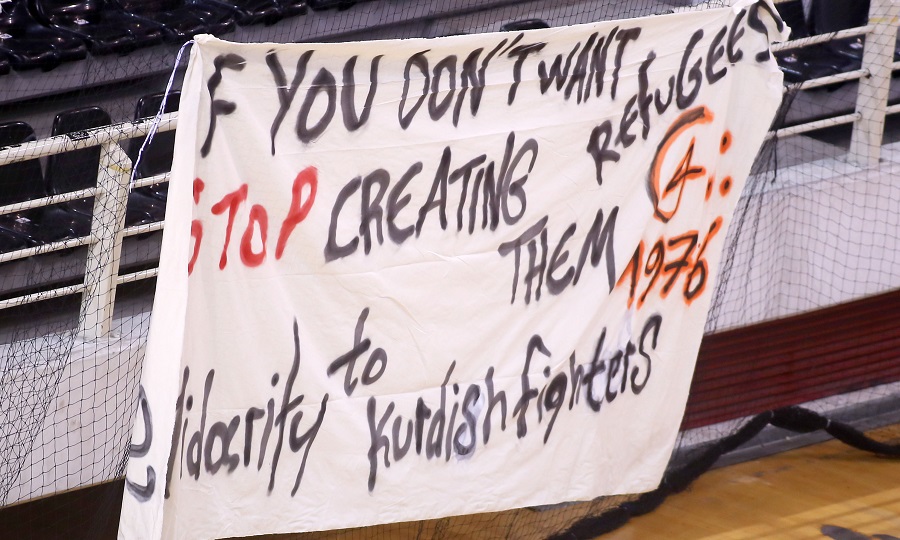 F YOU DON'T WANT REFUGEES
STOP CREATING THEM
1976
lidarity to Kurdish fighters